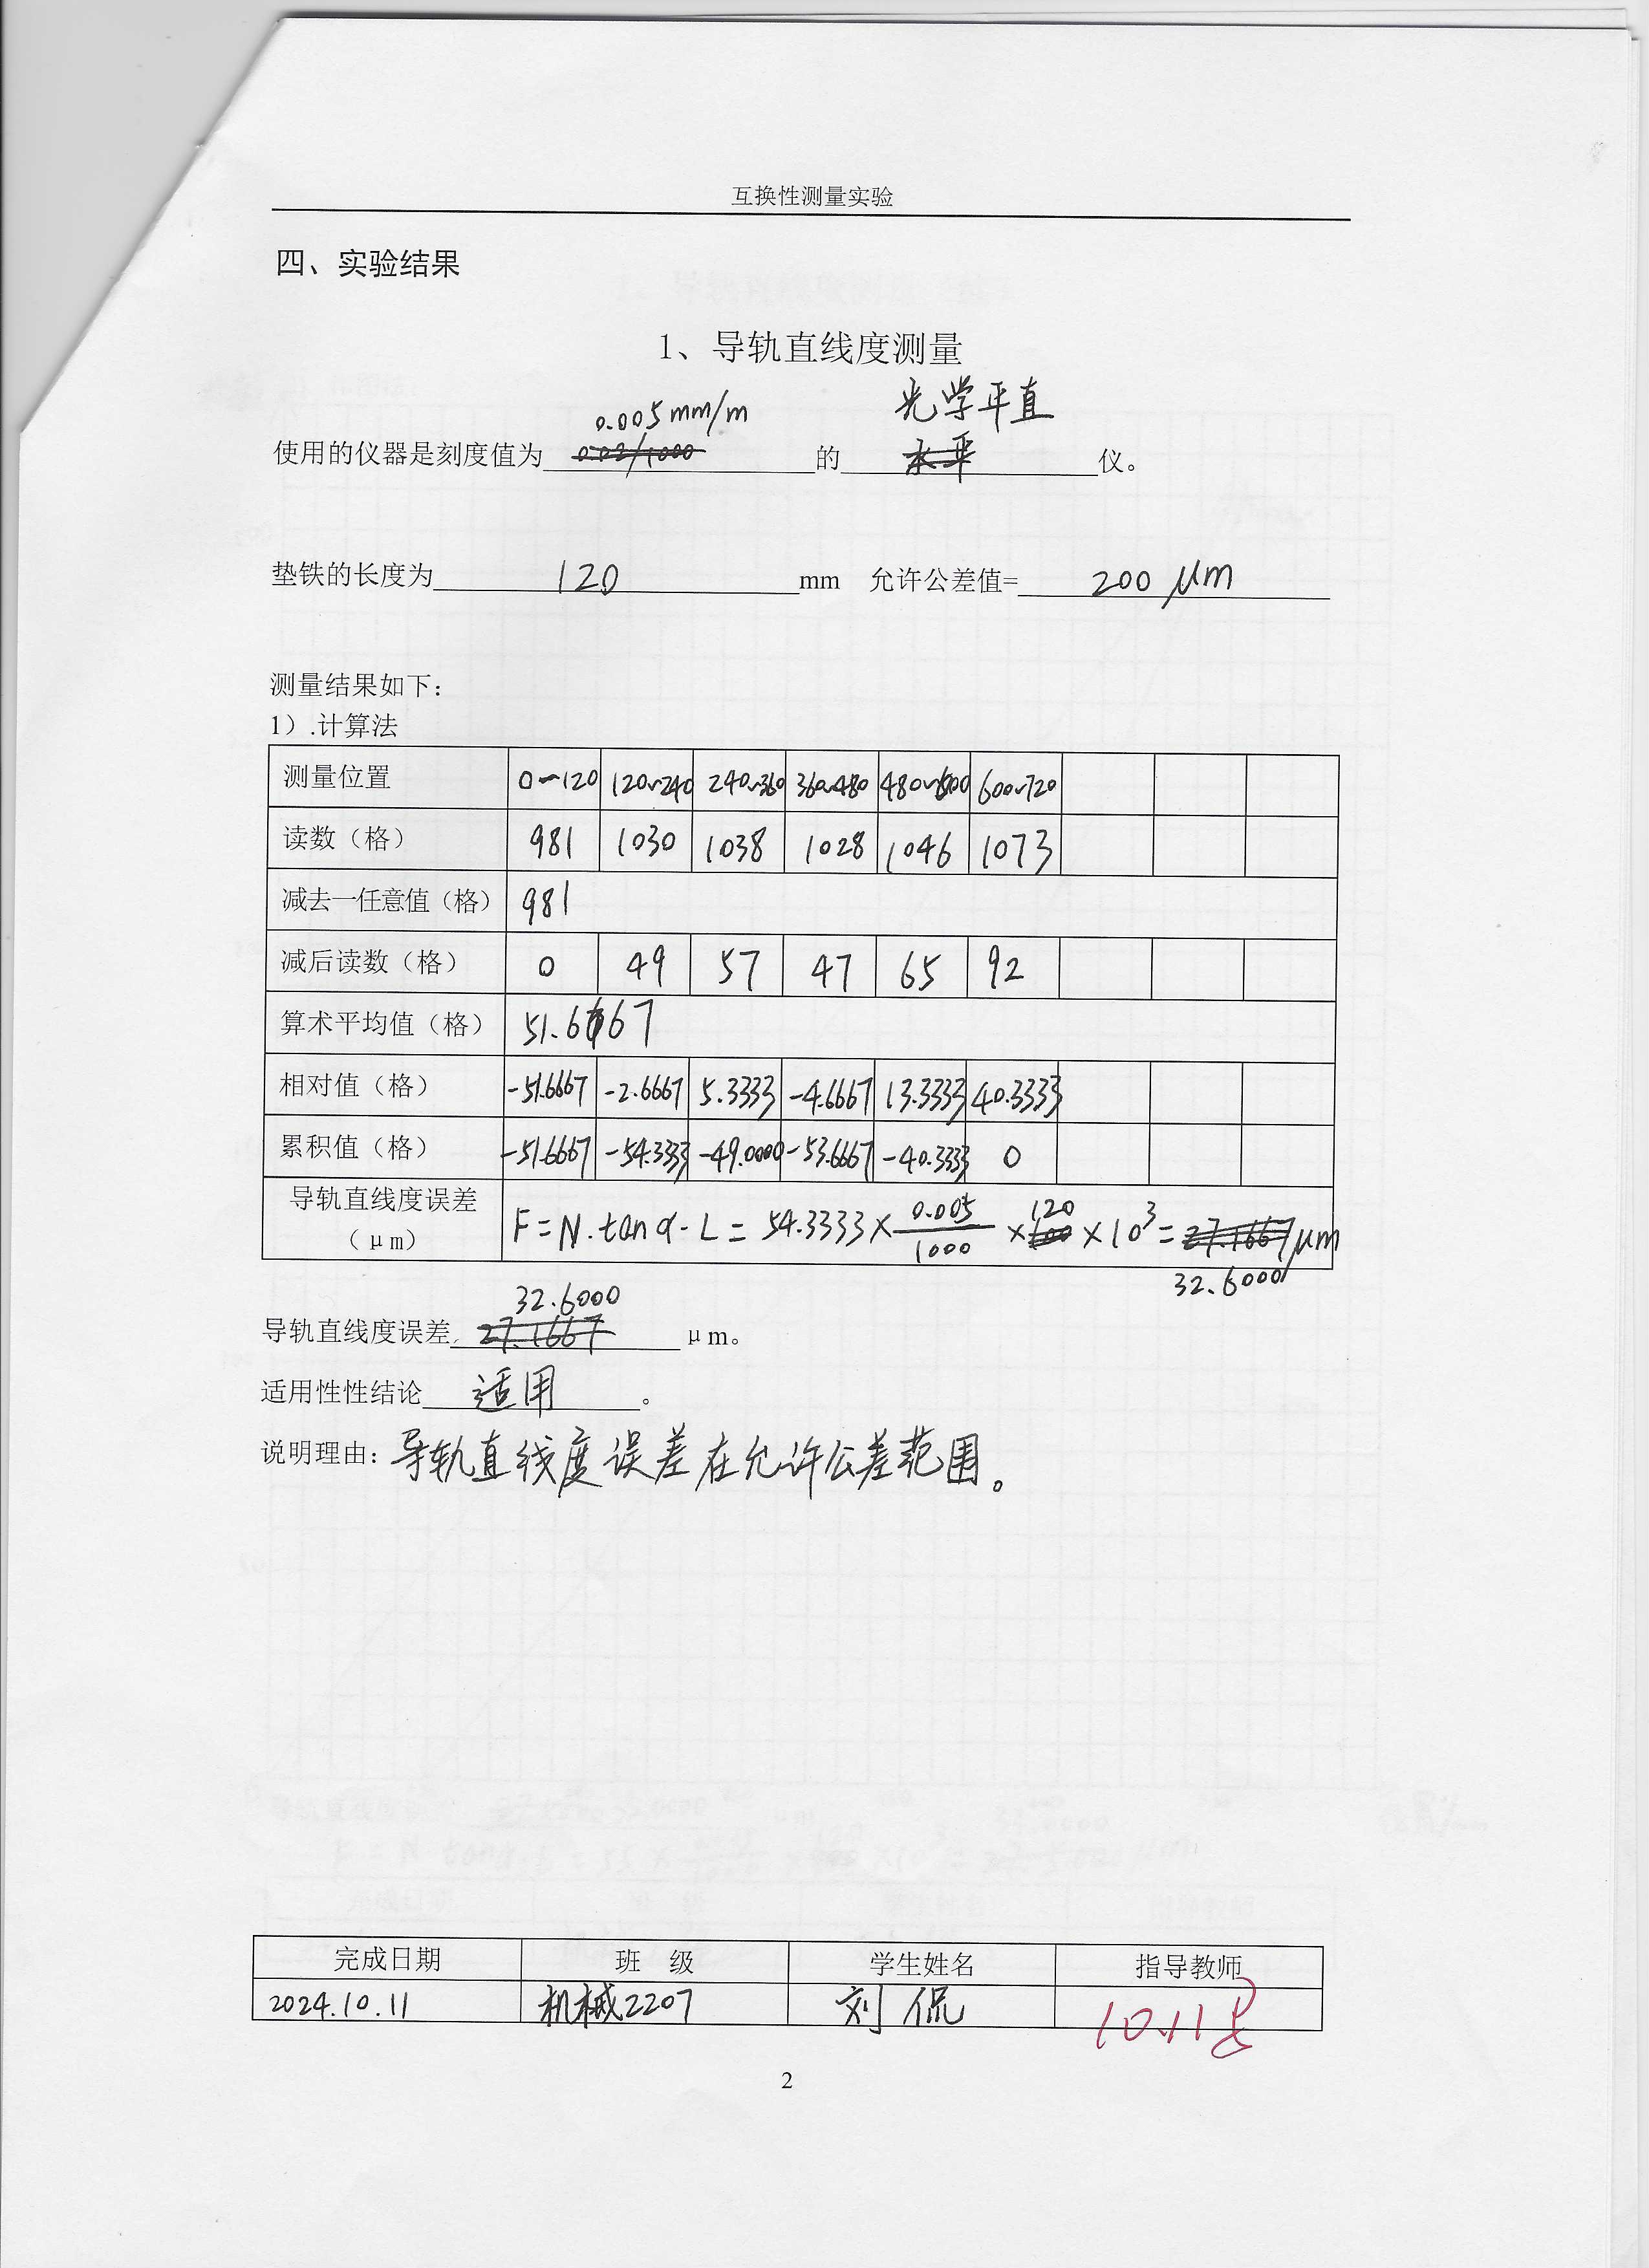 互换性测量实验
四、实验结果
1、导轨直线度测量
0.005mm/m 光学平直
使用的仪器是刻度值为 0.02/1000 的 水平 仪。
垫铁的长度为 120 mm 允许公差值= 200 μm
测量结果如下：
1）.计算法
测量位置 0~120 120~240 240~360 360~480 480~600 600~720
读数（格） 981 1030 1038 1028 1046 1073
减去一任意值（格） 981
减后读数（格） 0 49 57 47 65 92
算术平均值（格） 51.6667
相对值（格） -51.6667 -2.6667 5.3333 -4.6667 13.3333 40.3333
累积值（格） -51.6667 -54.3333 -49.0000 -53.6667 -40.3333 0
导轨直线度误差（μm） F=N·tanα·L=54.3333×0.005/1000×100 120×10³=27.1667μm
32.6000
32.6000
导轨直线度误差 27.1667 μm。
适用性性结论 适用 。
说明理由：导轨直线度误差在允许公差范围。
完成日期 班 级 学生姓名 指导教师
2024.10.11 机械2207 刘侃 10.11
2